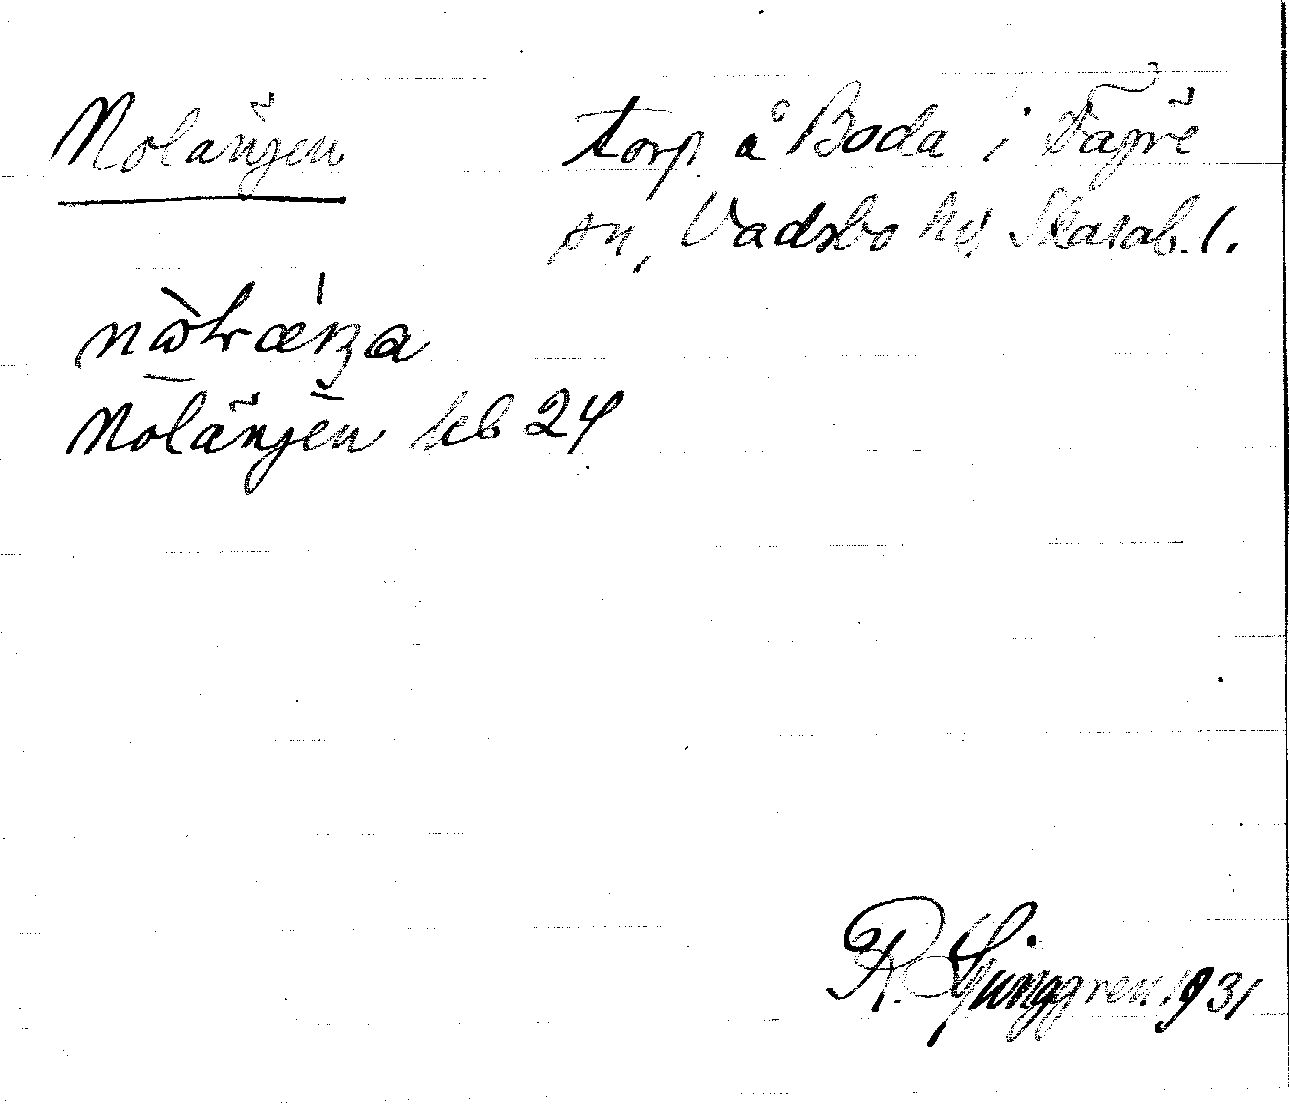 Nolängen
torp å Boda i Fägre
sn, Vadsbo hd, Skarab. l.
Nolängen kb 24
R. Ljunggren 1931